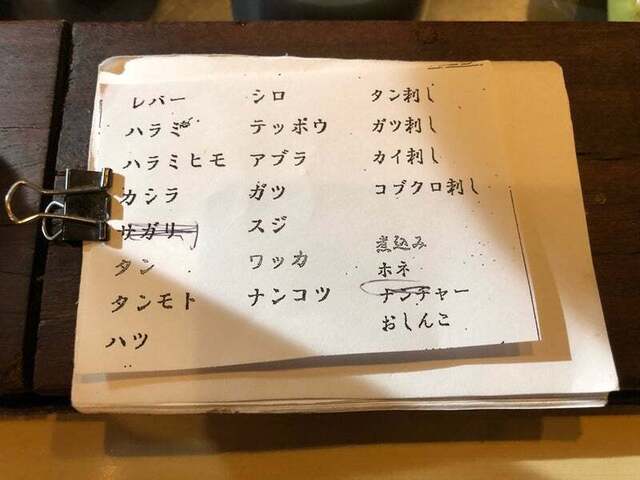 レバー
ハラミ
ハラミヒモ
カシラ
サガリ
タン
タンモト
ハツ
シロ
テッポウ
アブラ
ガツ
スジ
ワッカ
ナンコツ
タン刺し
ガツ刺し
カイ刺し
コブクロ刺し
煮込み
ホネ
ナンチャー
おしんこ